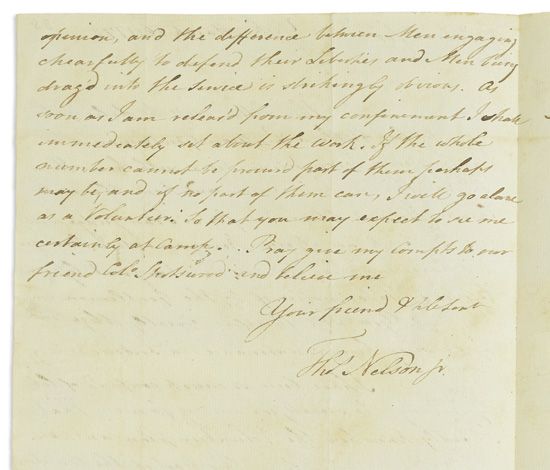 opinion, and the difference between Men engaging
chearfully to defend their Liberties and Men being
drag'd into the Service is strikingly obvious. As
soon as I am releas'd from my confinement I shall
immediately set about the work. If the whole
number cannot be procur'd part of them perhaps
may be, and if no part of them can, I will go alone
as a Volunteer. So that you may expect to see me
certainly at Camp. Pray give my Compts to our
friend Colo. Spotswood and believe me
Your friend &
Thos. Nelson Jr.